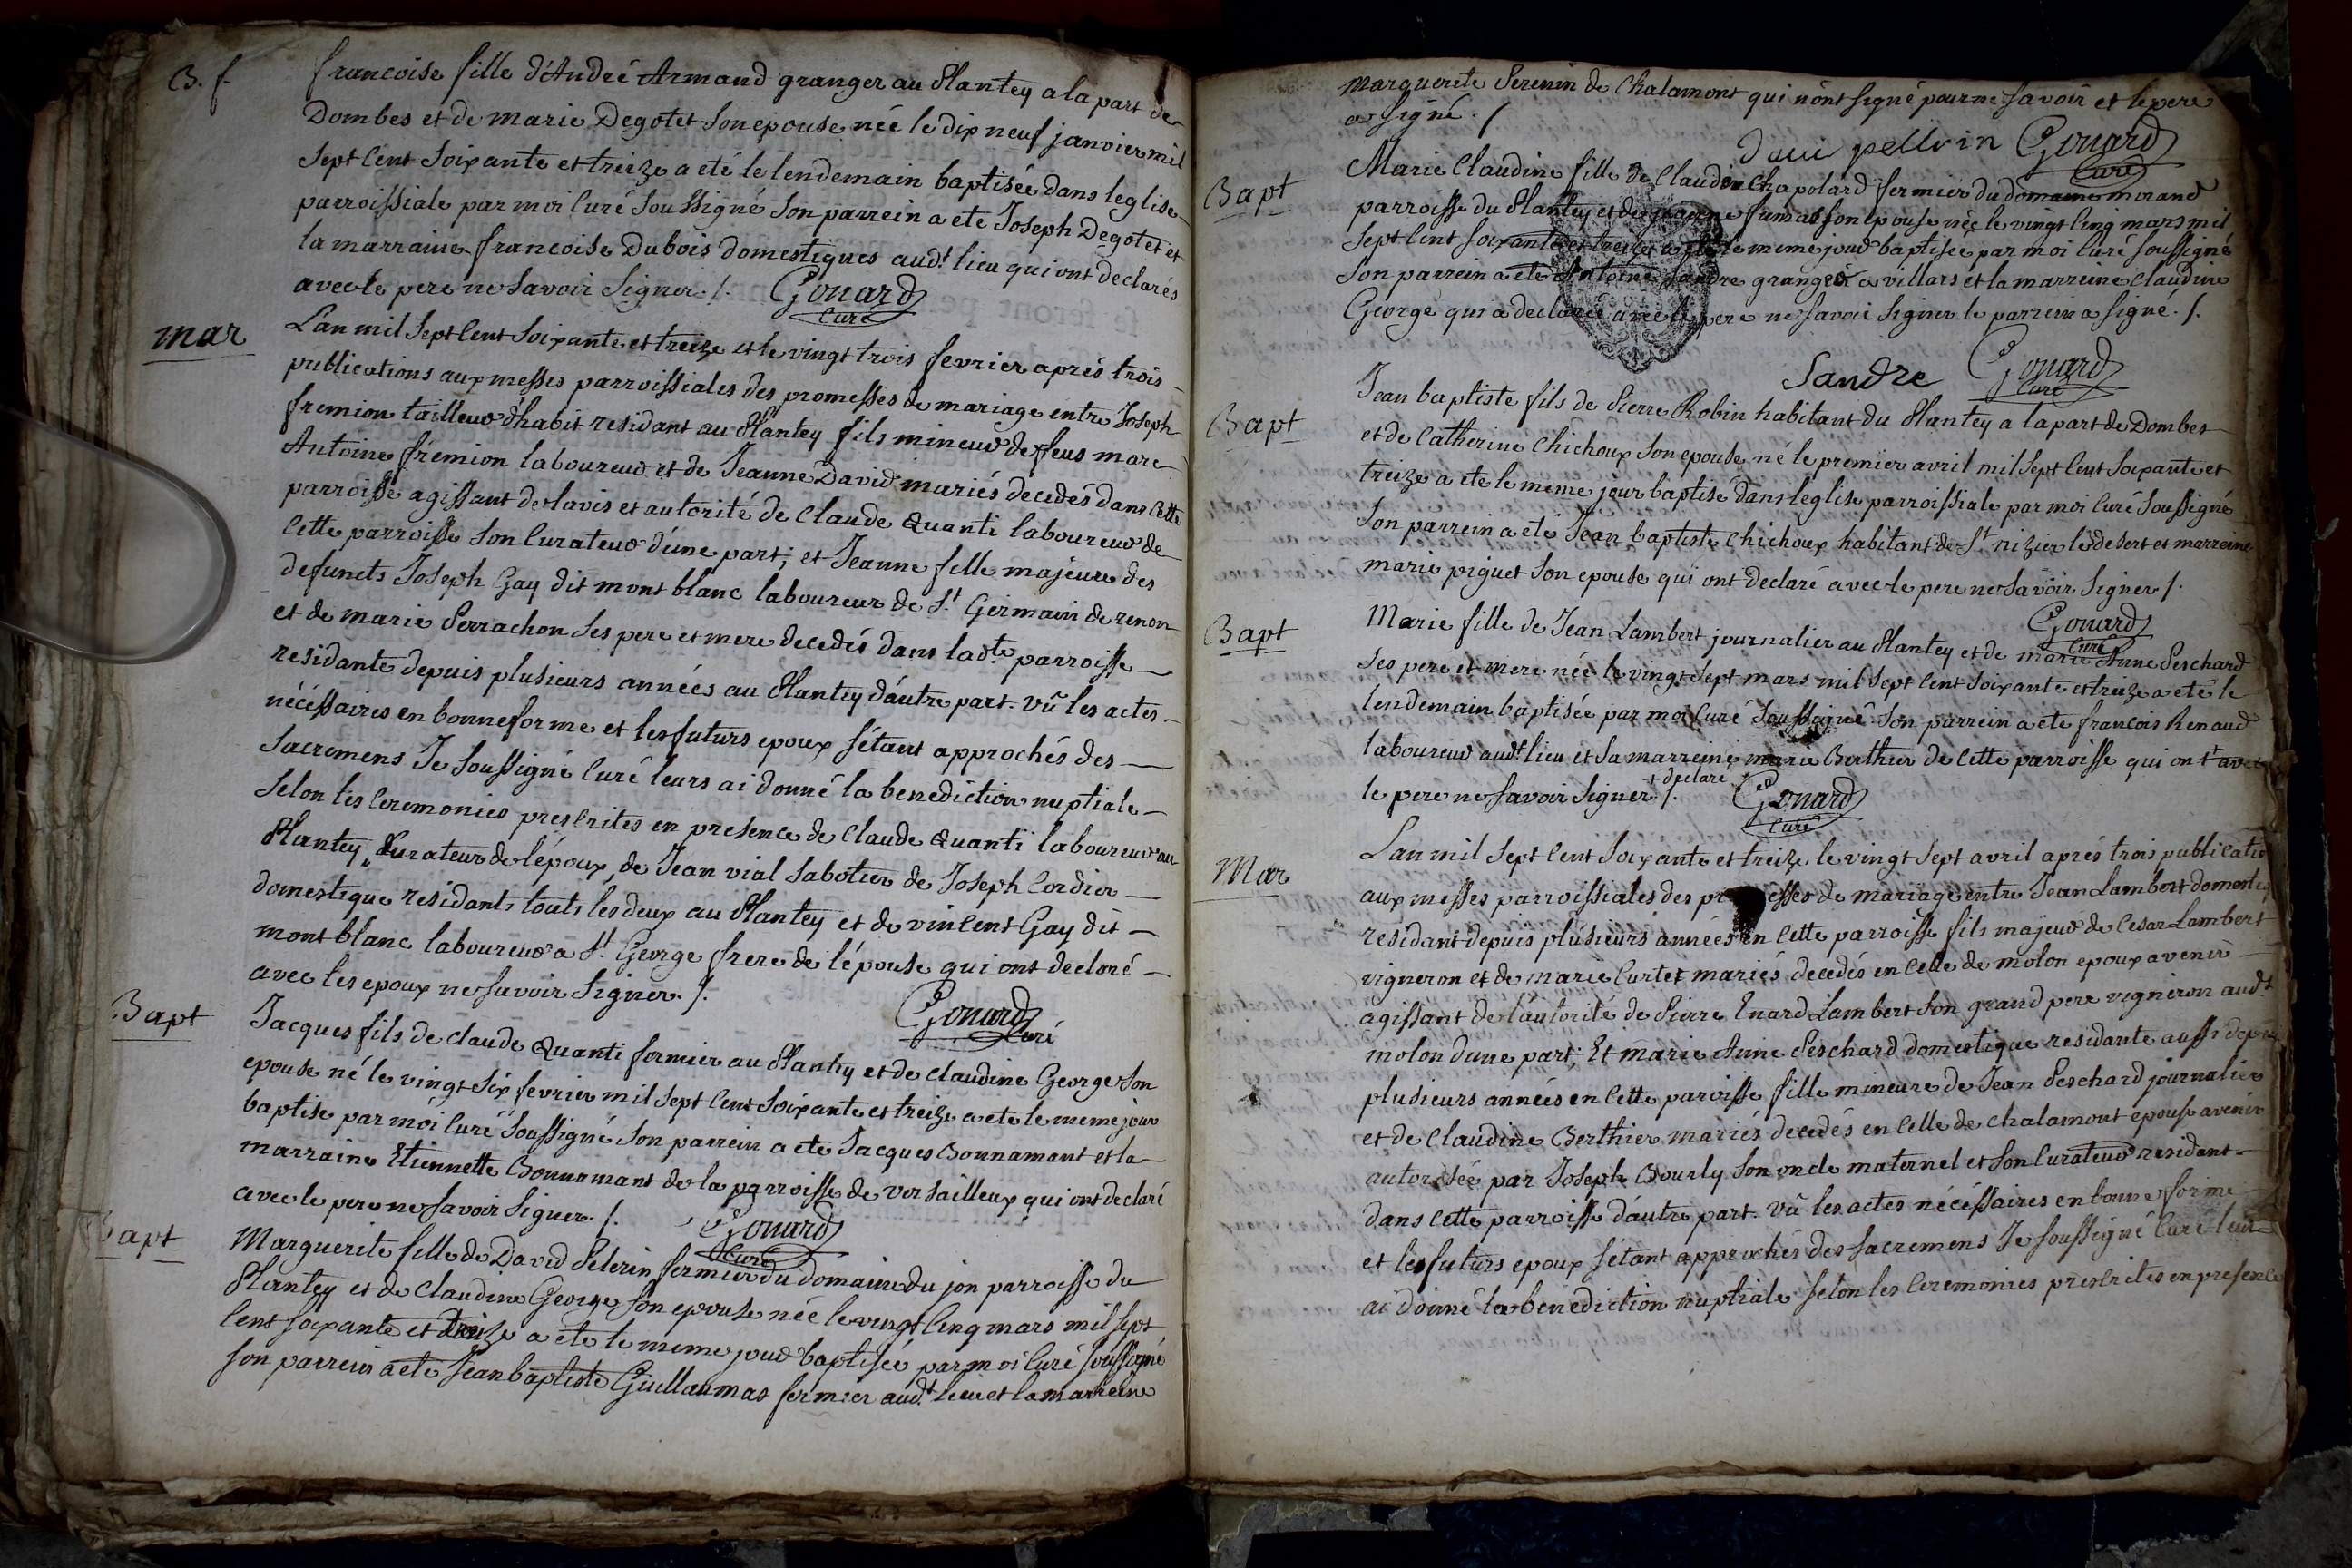 B. f.
francoise fille d'André Armand granger au Plantey a la part de
Dombes et de marie Degotet son epouse née le dix neuf janvier mil
sept cent soixante et treize a eté le lendemain baptisée dans leglise
parroissiale par moi curé soussigné son parrein a ete Joseph Degotet et
la marraine francoise Dubois domestiques audt lieu qui ont declarés
avec le pere ne savoir signer ./. Gouard
curé
mar
Lan mil sept cent soixante et treize et le vingt trois fevrier aprés trois
publications aux messes parroissiales des promesses de mariage entre Joseph
fremion tailleur d'habit residant au Plantey fils mineur de feus marc
Antoine frémion laboureur et de Jeanne David mariés decedés dans cette
parroisse agissant de lavis et autorité de claude Quanti laboureur de
cette parroisse son curateur d'une part; et Jeanne fille majeure des
defuncts Joseph Gay dit mont blanc laboureur de St Germain de renon
et de marie Perrachon ses pere et mere decedés dans ladte parroisse
residante depuis plusieurs années au Plantey d'autre part. vû les actes
nécéssaires en bonne forme et les futurs epoux s'étant approchés des
sacremens Je soussigné curé leurs ai donné la benediction nuptiale
selon les ceremonies prescrites en presence de claude Quanti laboureur au
Plantey, curateur de lépoux, de Jean vial sabotier de Joseph Cordier
domestique residants touts les deux au Plantey et de vincent Gay dit
mont blanc laboureur a St George frere de l'épouse qui ont declaré
avec les epoux ne savoir signer ./.
Gouard
curé
Bapt
Jacques fils de claude Quanti fermier au Plantey et de claudine George son
epouse né le vingt six fevrier mil sept cent soixante et treize a ete le meme jour
baptise par moi curé soussigné son parrein a ete Jacques Bonnamant et la
marraine Etiennette Bonnamant de la parroisse de versailleux qui ont declaré
avec le pere ne savoir signer ./. Gouard
curé
Bapt
Marguerite fille de David Pelerin fermier du domaine du jon parroisse du
Plantey et de claudine George son epouse née le vingt cinq mars mil sept
cent soixante et treize a ete le meme jour baptisée par moi curé soussigné
son parrein a ete Jean baptiste Guillaumas fermier audt lieu et la marreine
marguerite Perenin de Chalamont qui n'ont signé pour ne savoir et le pere
a signé ./
davi pellrin Gouard
curé
Bapt
Marie Claudine fille de Claudin Chapolard fermier du domaine morand
parroisse du Plantey et de jeanne fumas son epouse née le vingt cinq mars mil
sept cent soixante et treize a ete le meme jour baptisée par moi curé soussigné
son parrein a ete Antoine Sandre granger a villars et la marreine claudine
George qui a declarée avec le pere ne savoir signer le parrein a signé ./.
Sandre Gouard
curé
Bapt
Jean baptiste fils de Pierre Robin habitant du Plantey a la part de Dombes
et de Catherine Chichoux son epouse né le premier avril mil sept cent soixante et
treize a ete le meme jour baptisé dans leglise parroissiale par moi curé soussigné
son parrein a eté Jean baptiste Chichoux habitant de St nizier le desert et marreine
marie piguet son epouse qui ont declaré avec le pere ne savoir signer ./.
Gouard
curé
Bapt
Marie fille de Jean Lambert journalier au Plantey et de marie Anne Peschard
ses pere et mere née le vingt sept mars mil sept cent soixante et treize a eté le
lendemain baptisée par moi curé soussigné son parrein a ete francois Renaud
laboureur audt lieu et sa marreine marie Berthier de cette parroisse qui ont avec
+ declaré
le pere ne savoir signer ./. Gouard
curé
Mar
Lan mil sept cent soixante et treize le vingt sept avril aprés trois publicatio
aux messes parroissiales des pr esses de mariage entre Jean Lambert domesti
residant depuis plusieurs années en cette parroisse fils majeur de Cesar Lambert
vigneron et de marie Curtet mariés decedés en celle de molon epoux avenir
agissant de l'autorité de Pierre Enard Lambert son grand pere vigneron audt
molon dune part; Et marie Anne Peschard domestique residante aussi depuis
plusieurs années en cette paroisse fille mineure de Jean Peschard journalier
et de Claudine Berthier mariés decedés en celle de chalamont epouse avenir
autorisée par Joseph Bourly son oncle maternel et son curateur residant
dans cette parroisse d'autre part. vû les actes nécéssaires en bonne forme
et les futurs epoux s'étant approchés des sacremens Je soussigné curé leur
ai donné la benediction nuptiale selon les ceremonies prescrites en presence